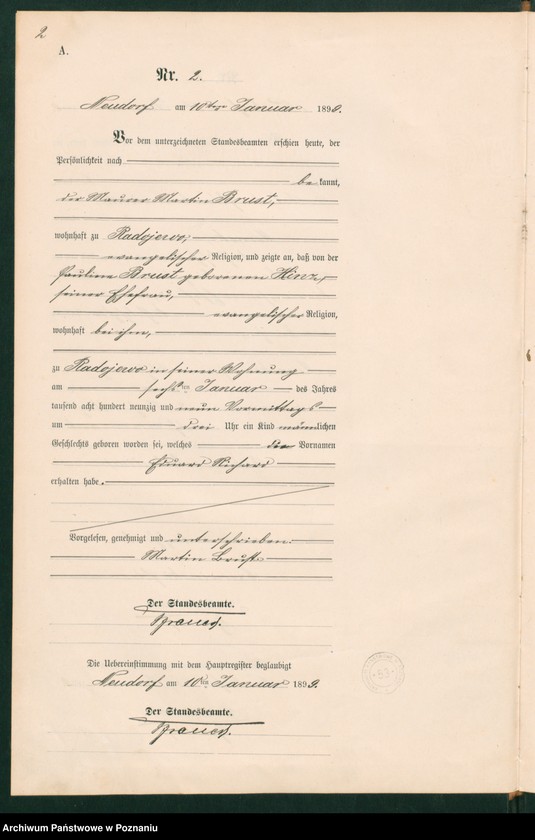 2
A.
Nr. 2.
Neudorf am 10ten Januar 1899.
Vor dem unterzeichneten Standesbeamten erschien heute, der
Persönlichkeit nach
be kannt,
der Maurer Martin Brust,
wohnhaft zu Radojewo,
evangelischer Religion, und zeigte an, daß von der
Pauline Brust geborenen Hinz,
seiner Ehefrau,
evangelischer Religion,
wohnhaft bei ihm,
zu Radojewo in seiner Wohnung
am sechsten Januar des Jahres
tausend acht hundert neunzig und neun Vormittags
um drei Uhr ein Kind männlichen
Geschlechts geboren worden sei, welches die Vornamen
Eduard Richard
erhalten habe.
Vorgelesen, genehmigt und unterschrieben.
Martin Brust
Der Standesbeamte.
Die Uebereinstimmung mit dem Hauptregister beglaubigt
Neudorf am 10ten Januar 1899.
Der Standesbeamte.
Archiwum Państwowe w Poznaniu